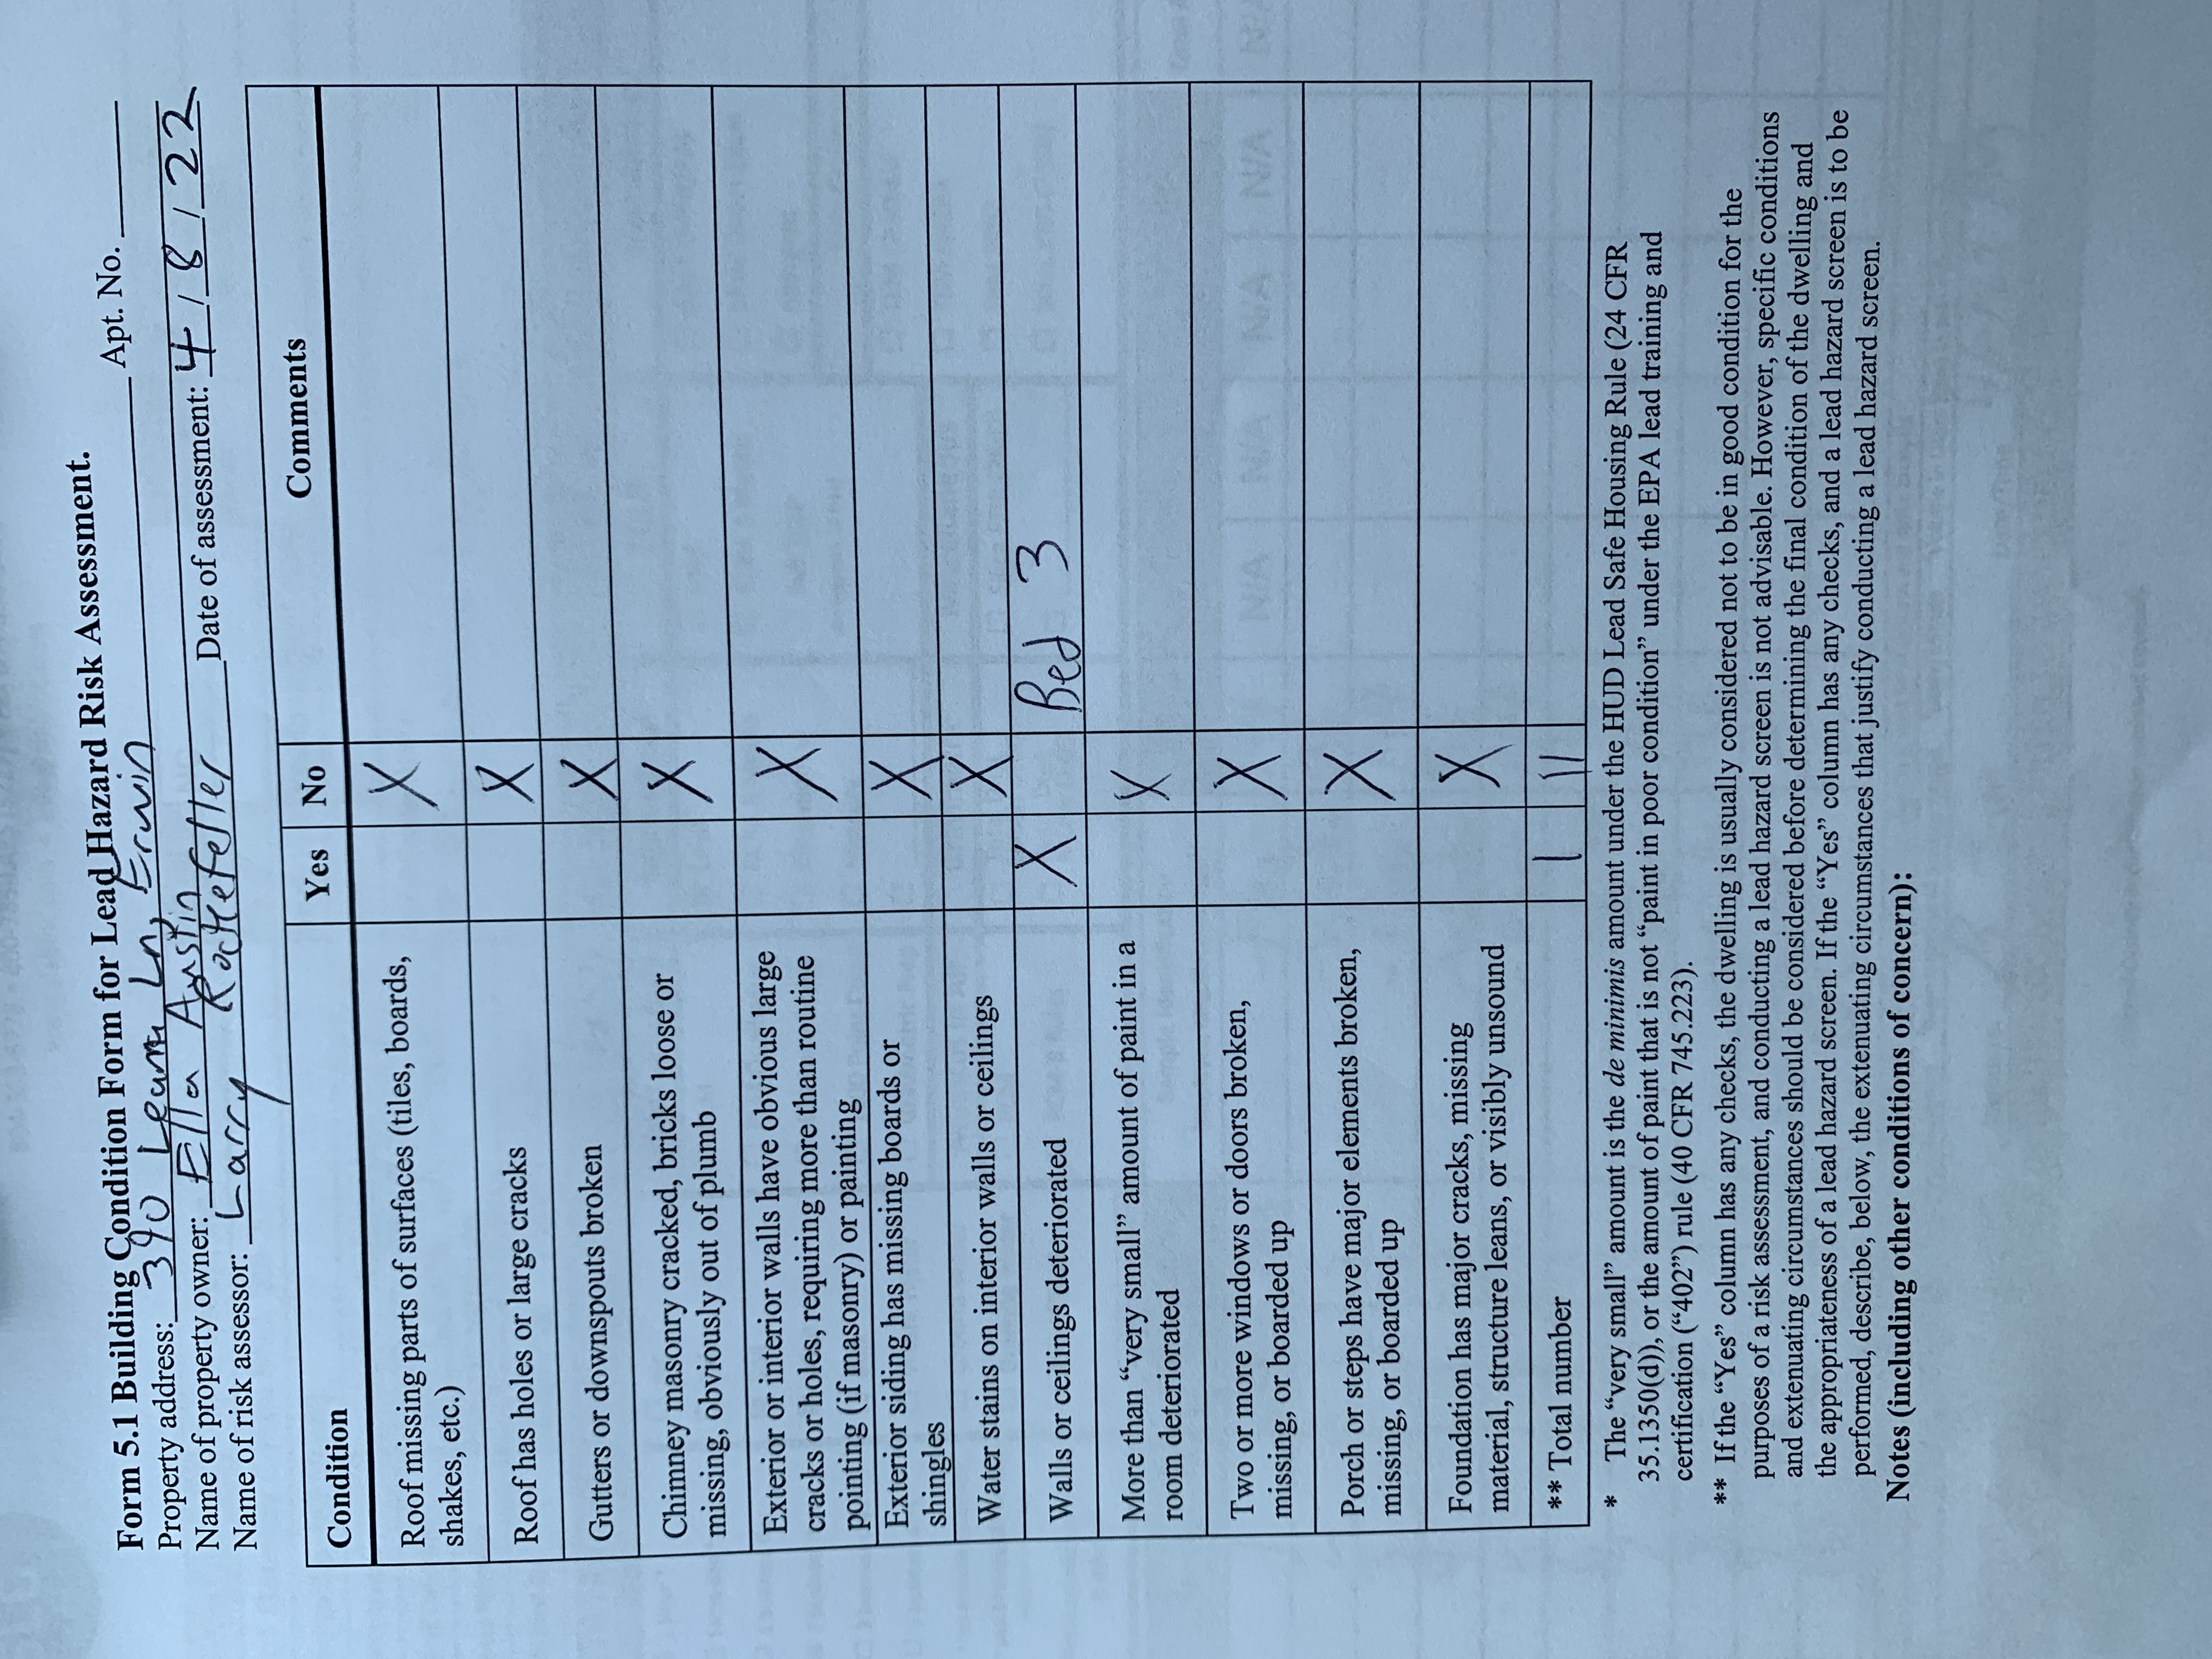 Form 5.1 Building Condition Form for Lead Hazard Risk Assessment.
Property address: 390 Ln, Erwin Apt. No.
Name of property owner: Ella Austin
Name of risk assessor: Larry Rockefeller Date of assessment: 4 / 8 / 22
Condition Yes No Comments
Roof missing parts of surfaces (tiles, boards,
shakes, etc.) X
Roof has holes or large cracks X
Gutters or downspouts broken X
Chimney masonry cracked, bricks loose or
missing, obviously out of plumb X
Exterior or interior walls have obvious large
cracks or holes, requiring more than routine
pointing (if masonry) or painting X
Exterior siding has missing boards or
shingles X
Water stains on interior walls or ceilings X
Walls or ceilings deteriorated X Bed 3
More than “very small” amount of paint in a
room deteriorated X
Two or more windows or doors broken,
missing, or boarded up X
Porch or steps have major elements broken,
missing, or boarded up X
Foundation has major cracks, missing
material, structure leans, or visibly unsound X
** Total number 1 11
* The “very small” amount is the de minimis amount under the HUD Lead Safe Housing Rule (24 CFR
35.1350(d)), or the amount of paint that is not “paint in poor condition” under the EPA lead training and
certification (“402”) rule (40 CFR 745.223).
** If the “Yes” column has any checks, the dwelling is usually considered not to be in good condition for the
purposes of a risk assessment, and conducting a lead hazard screen is not advisable. However, specific conditions
and extenuating circumstances should be considered before determining the final condition of the dwelling and
the appropriateness of a lead hazard screen. If the “Yes” column has any checks, and a lead hazard screen is to be
performed, describe, below, the extenuating circumstances that justify conducting a lead hazard screen.
Notes (including other conditions of concern):